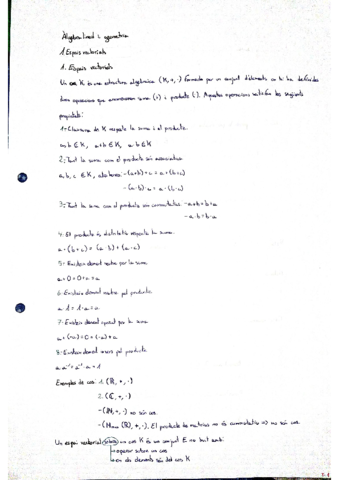 Àlgebra lineal i geometria
1. Espais vectorials
1. Espais vectorials
Un cos K és una estructura algebraica (K, +, ·) formada per un conjunt d'elements on hi ha definides
dues operacions que anomenarem suma (+) i producte (·). Aquestes operacions satisfan les següents
propietats:
1- Clausura de K respecte la suma i el producte.
a, b ∈ K, a+b ∈ K, a·b ∈ K
2- Tant la suma com el producte són associatius
a, b, c ∈ K, -(a+b)+c = a+(b+c)
-(a·b)·c = a·(b·c)
3- Tant la suma com el producte són commutatius -a+b=b+a
-a·b=b·a
4- El producte és distributiu respecte la suma.
a·(b+c) = (a·b)+(a·c)
5- Existeix element neutre per la suma
a+0=0+a=a
6- Existeix element neutre pel producte
a·1=1·a=a
7- Existeix element oposat per la suma
a+(-a)=0=(-a)+a
8- Existeix element invers pel producte
a·a⁻¹=a⁻¹·a=1
Exemples de cos: 1. (ℝ, +, ·)
2. (ℂ, +, ·)
-(ℕ, +, ·) no són cos
-(, +, ·). El producte de matrius no és commutatiu => no són cos
Un espai vectorial sobre un cos K és un conjunt E no buit amb:
operar sobre un cos
els elements són del cos K